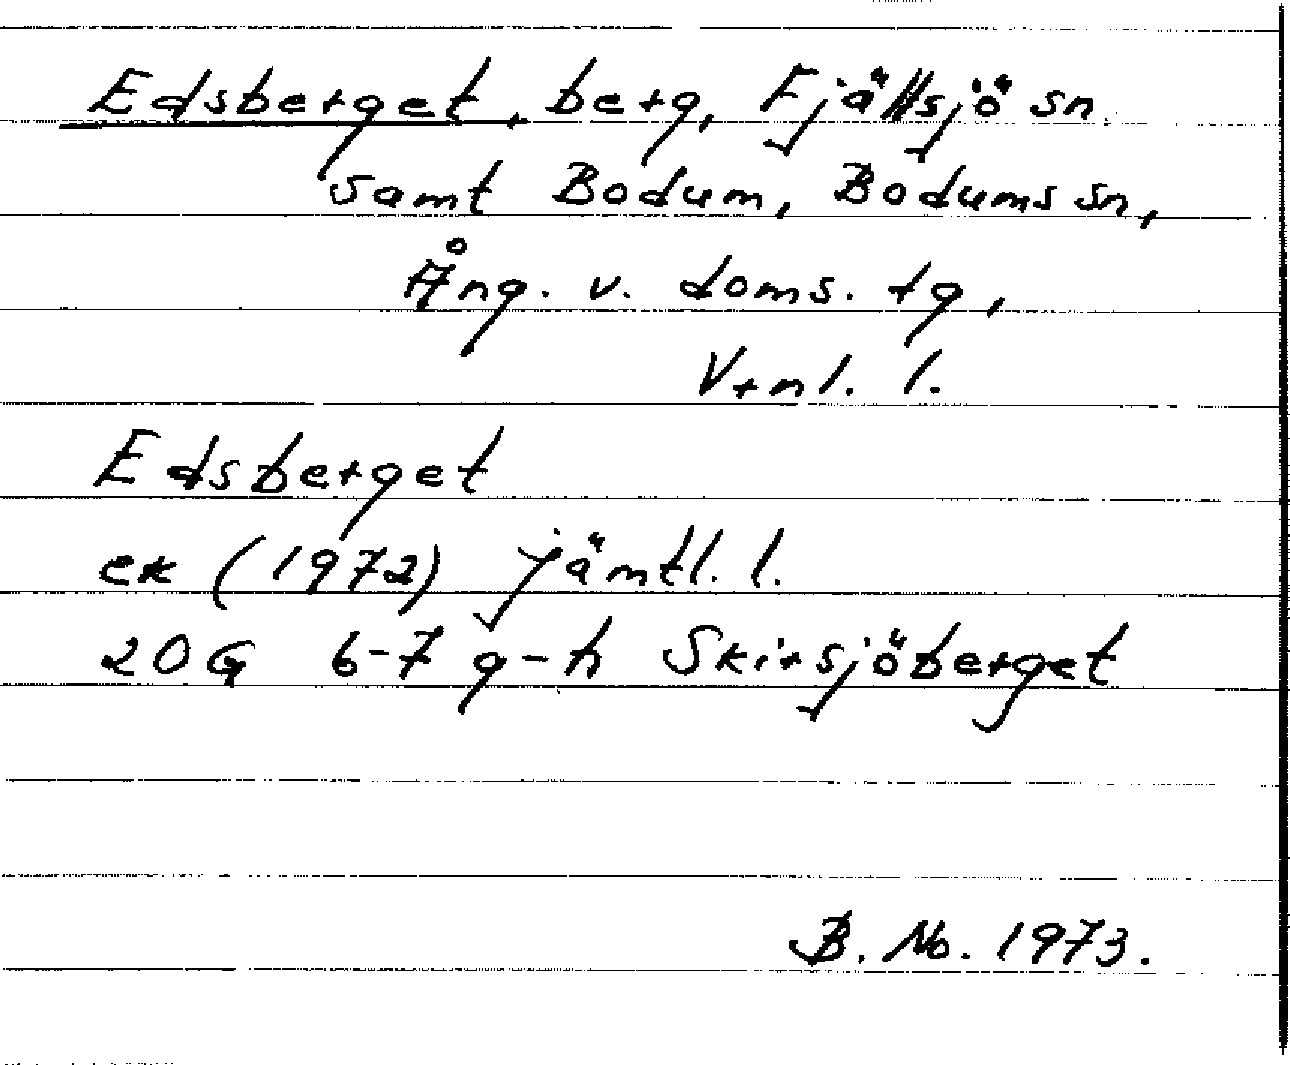 Edsberget, berg, Fjällsjö sn.
samt Bodum, Bodums sn,
Ång. v. doms. tg,
Vrnl. l.
Edsberget
ek (1972) Jämtl. l.
20G 6-7 g-h Skirsjöberget
B. No. 1973.